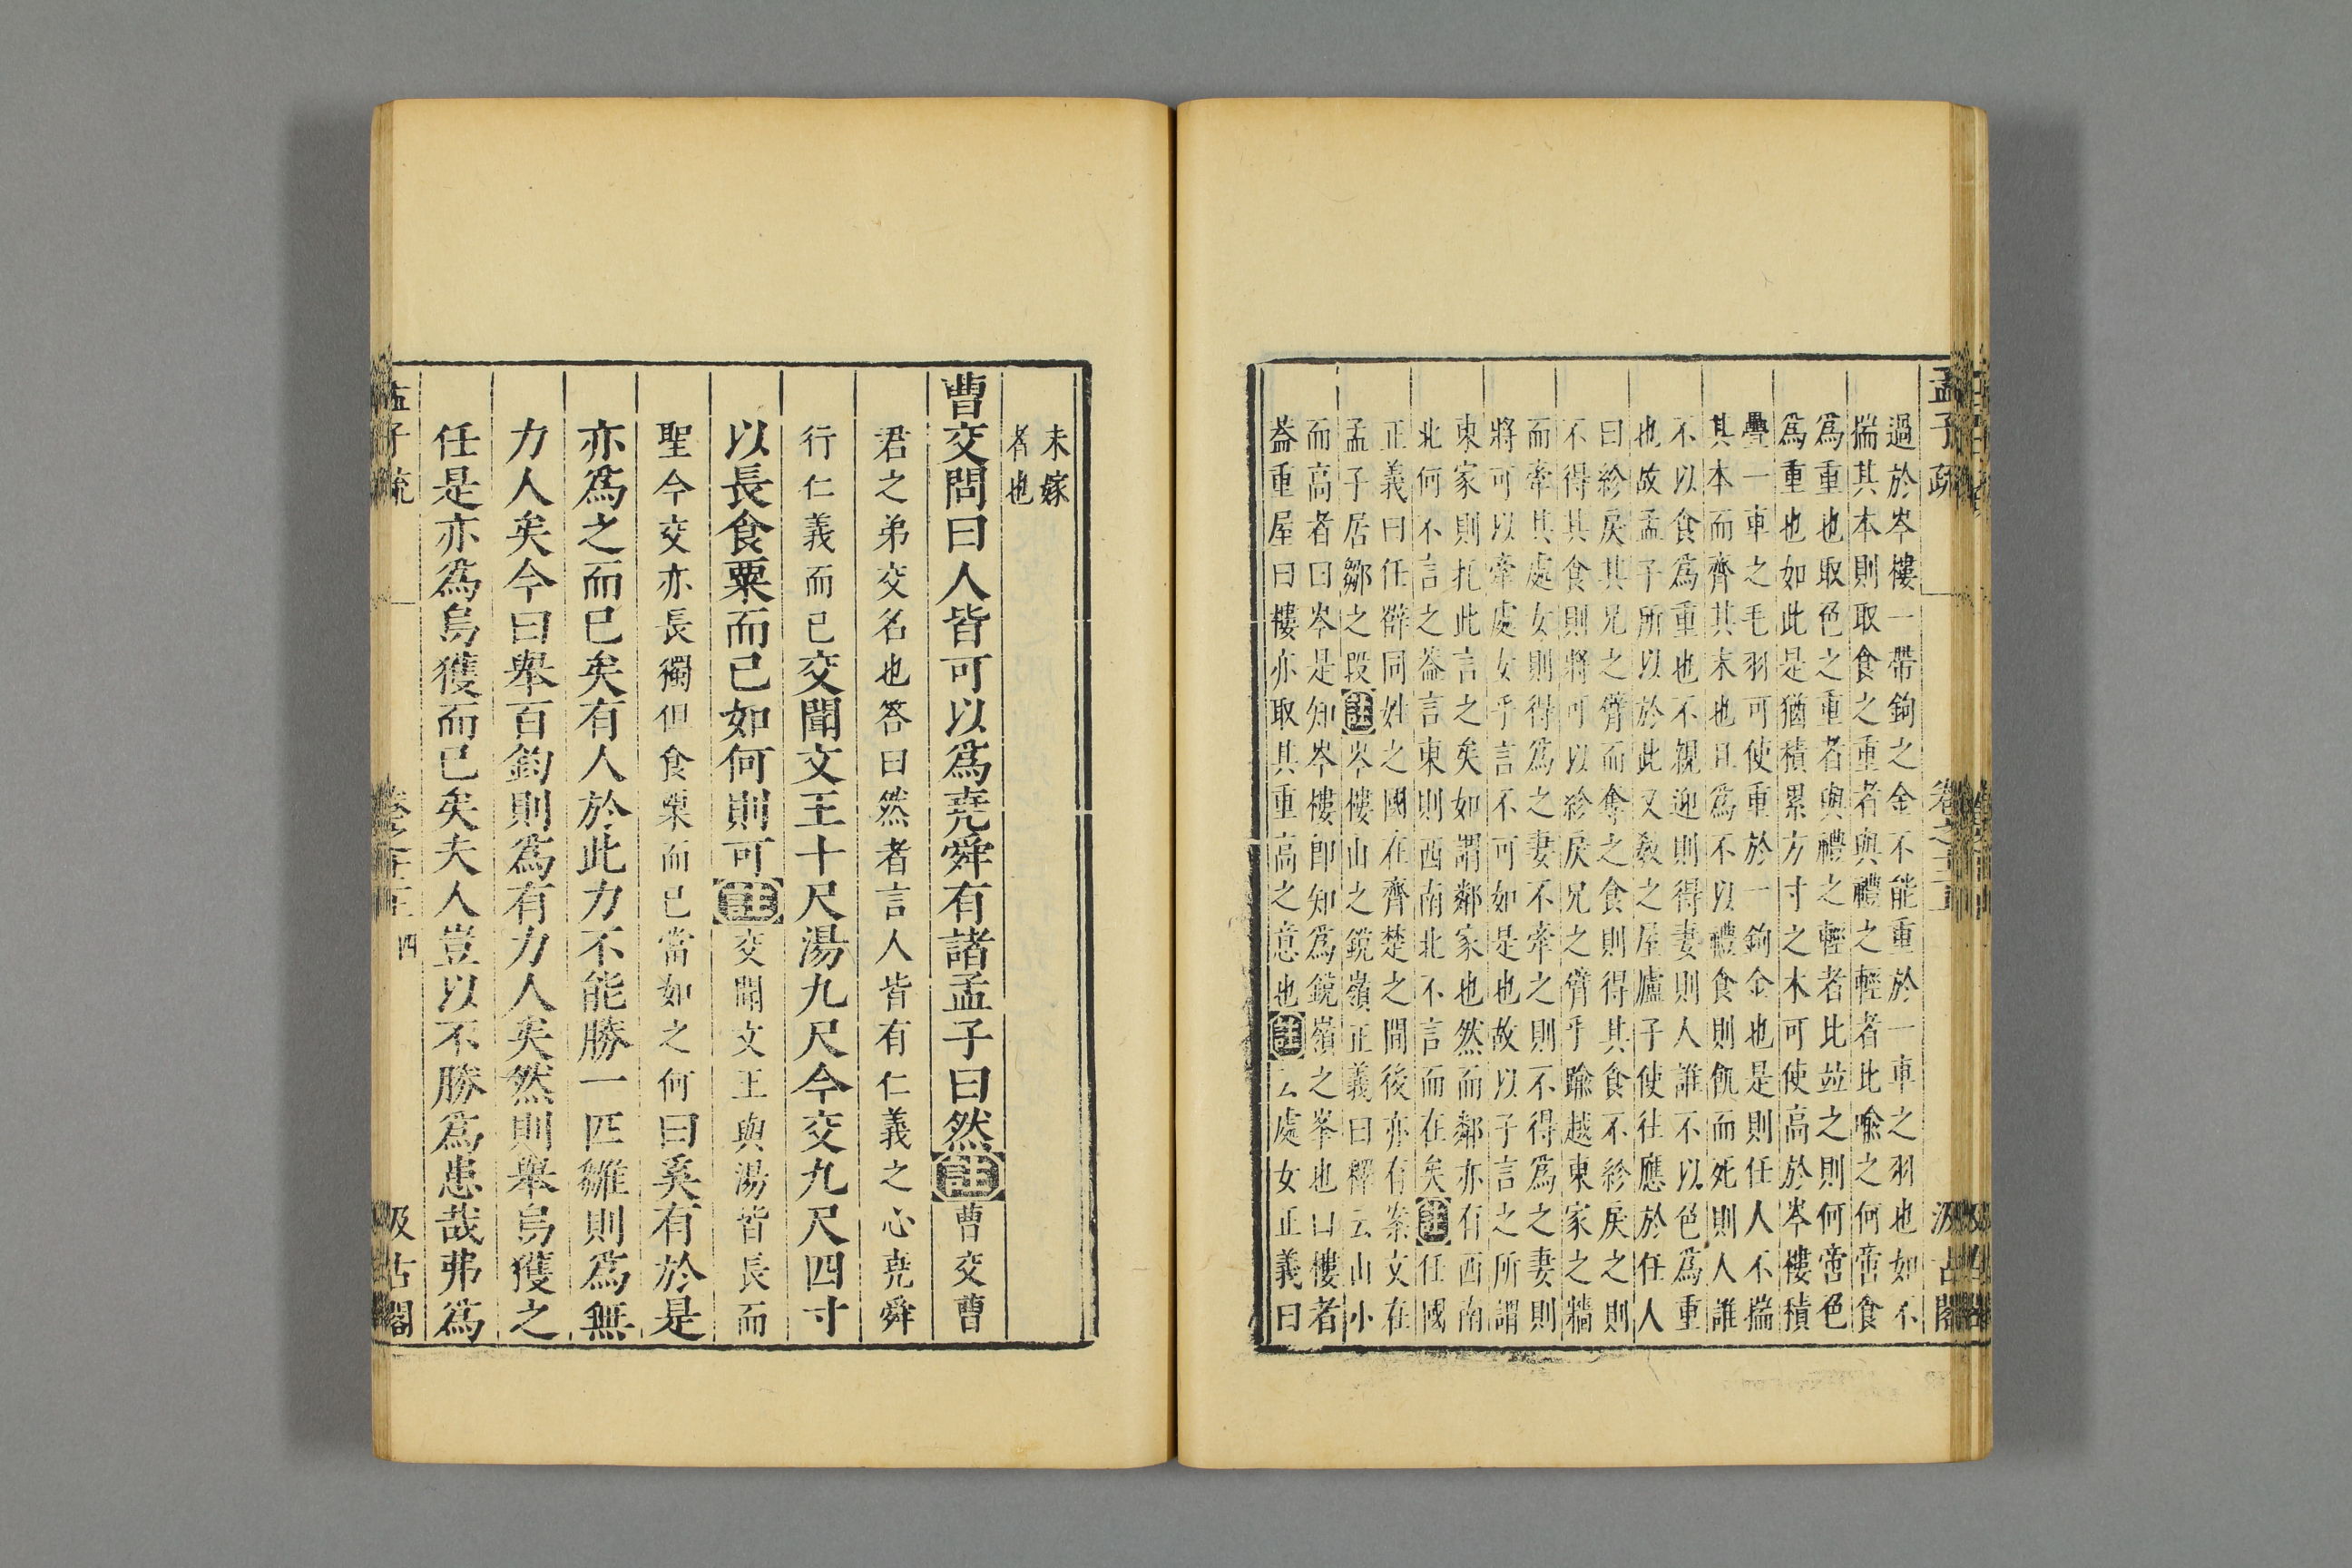 孟子疏 卷之十二 汲古閣
過於岑樓一帶鉤之金不能重於一車之羽也如不
揣其本則取食之重者與禮之輕者比喻之何啻食
爲重也取色之重者與禮之輕者比竝之則何啻色
爲重也如此是猶積累方寸之木可使高於岑樓積
疊一車之毛羽可使重於一鉤金也是則任人不揣
其本而齊其末也且爲不以禮食則飢而死則人誰
不以食爲重也不親迎則得妻則人誰不以色爲重
也故孟子所以於此又敎之屋廬子使往應於任人
曰紾戾其兄之臂而奪之食則得其食不紾戾之則
不得其食則將可以紾戾兄之臂乎踰越東家之牆
而牽其處女則得爲之妻不牽之則不得爲之妻則
將可以牽處女乎言不可如是也故以子言之所謂
東家則托此言之矣如謂鄰家也然而鄰亦有西南
北何不言之葢言東則西南北不言而在矣註任國
正義曰任薛同姓之國在齊楚之間後亦有案文在
孟子居鄒之段註岑樓山之銳嶺正義曰釋云山小
而高者曰岑是知岑樓卽知爲銳嶺之峯也曰樓者
葢重屋曰樓亦取其重高之意也註云處女正義曰
未嫁
者也
曹交問曰人皆可以爲堯舜有諸孟子曰然註曹交曹
君之弟交名也答曰然者言人皆有仁義之心堯舜
行仁義而已交聞文王十尺湯九尺今交九尺四寸
以長食粟而已如何則可註交聞文王與湯皆長而
聖今交亦長獨但食粟而已當如之何曰奚有於是
亦爲之而已矣有人於此力不能勝一匹雛則爲無
力人矣今曰舉百鈞則爲有力人矣然則舉烏獲之
任是亦爲烏獲而已矣夫人豈以不勝爲患哉弗爲
孟子疏 四 汲古閣